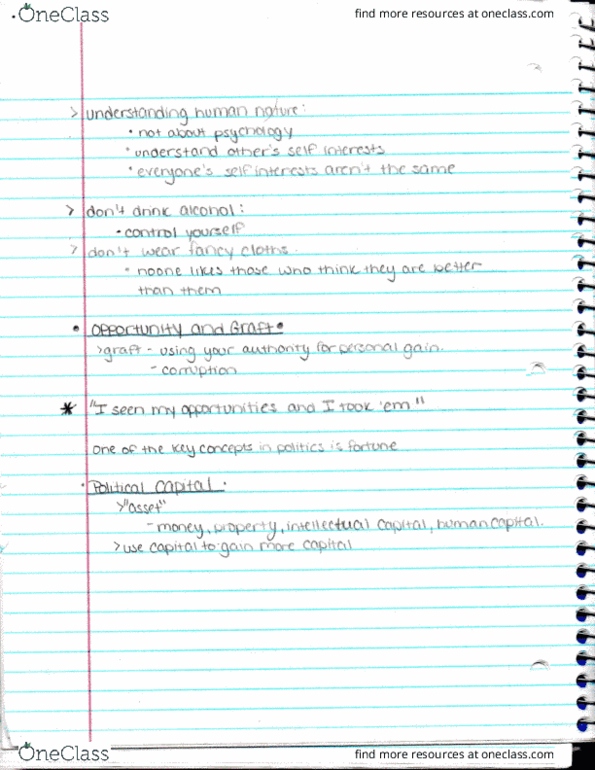 OneClass
find more resources at oneclass.com
> understanding human nature:
• not about psychology
• understand other's self interests
• everyone's self interests aren't the same
> don't drink alcohol:
• control yourself
> don't wear fancy cloths.
• noone likes those who think they are better
than them
• Opportunity and Graft •
> graft - using your authority for personal gain.
- corruption
* "I seen my opportunities and I took 'em"
One of the key concepts in politics is fortune
• Political Capital:
> "asset"
- money, property, intellectual capital, human capital.
> use capital to gain more capital
OneClass
find more resources at oneclass.com